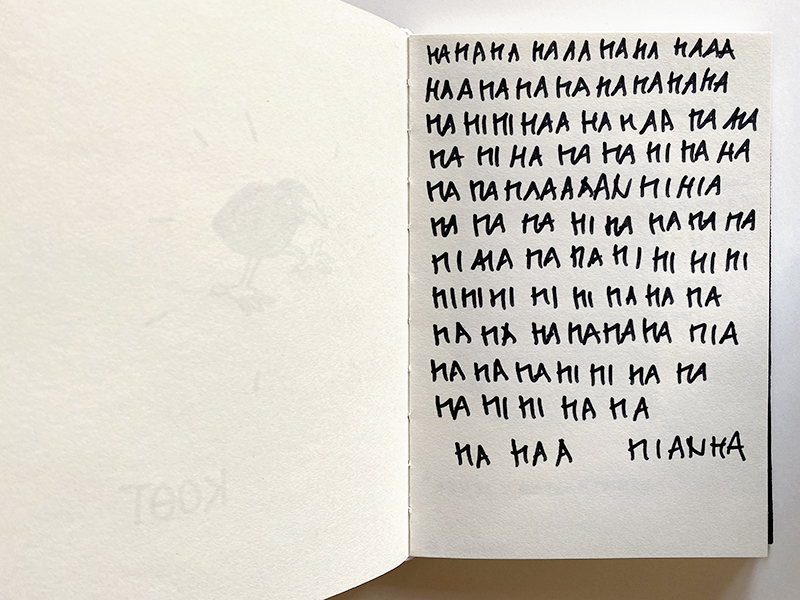 KOOT
HAHAHA HAAA HAHA HAAA
HAAHAHAHAHAHAHAHA
HAHIHIHAA HAHAA HAHA
HA HI HA HA HA HI HA HA
HA HAHAAAAAN HIHIA
HA HA HA HI HA HAHAHA
HIAHA HAHAHI HI HI HI
HIHIHI HI HI HAHAHA
HA HA HAHAHAHA HIA
HA HAHAHIHI HA HA
HA HI HI HA HA
HA HAA HIANHA